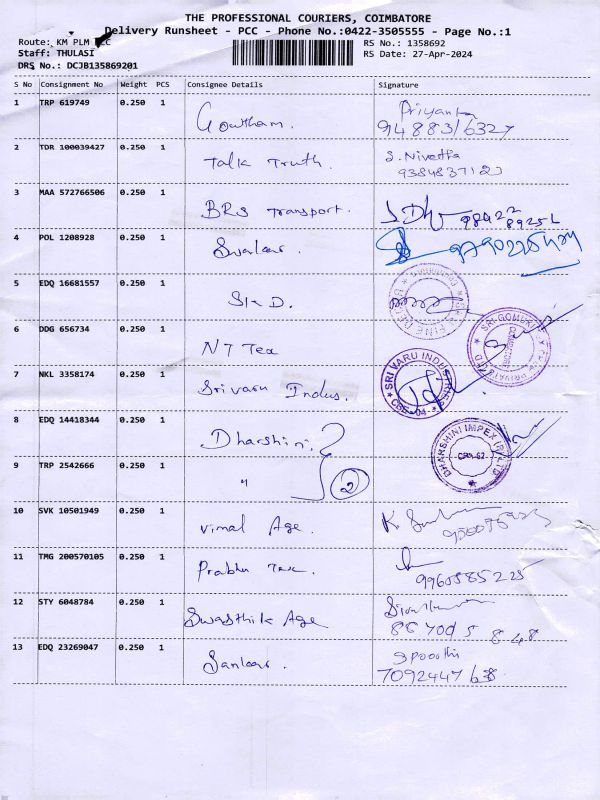 THE PROFESSIONAL COURIERS, COIMBATORE
Delivery Runsheet - PCC - Phone No.:0422-3505555 - Page No.:1
Route: KM PLM
RS No.: 1358692
Staff: THULASI
RS Date: 27-Apr-2024
DRS No.: DCJB135869201
S No Consignment No Weight PCS Consignee Details Signature
1 TRP 619749 0.250 1 Gowtham. Priyanka
9488316327
2 TDR 100039427 0.250 1 Talk Truth. S. Nivetha
9384837123
3 MAA 572766506 0.250 1 BRS Transport.
4 POL 1208928 0.250 1
5 EDQ 16681557 0.250 1
6 DDG 656734 0.250 1 NT Tex
SRI GOMUKI
PRIVATE
7 NKL 3358174 0.250 1 Sri varu Indus.
SRI VARU INDUSTRIES
CBE-04
8 EDQ 14418344 0.250 1 Dharshini.
DHARSHINI IMPEX (P) LTD
9 TRP 2542666 0.250 1 " 2
10 SVK 10501949 0.250 1 Vimal Age.
11 TMG 200570105 0.250 1 Prabhu Tex.
9960585225
12 STY 6048784 0.250 1 Swasthik Age
13 EDQ 23269047 0.250 1 Spoorthi
7092447638